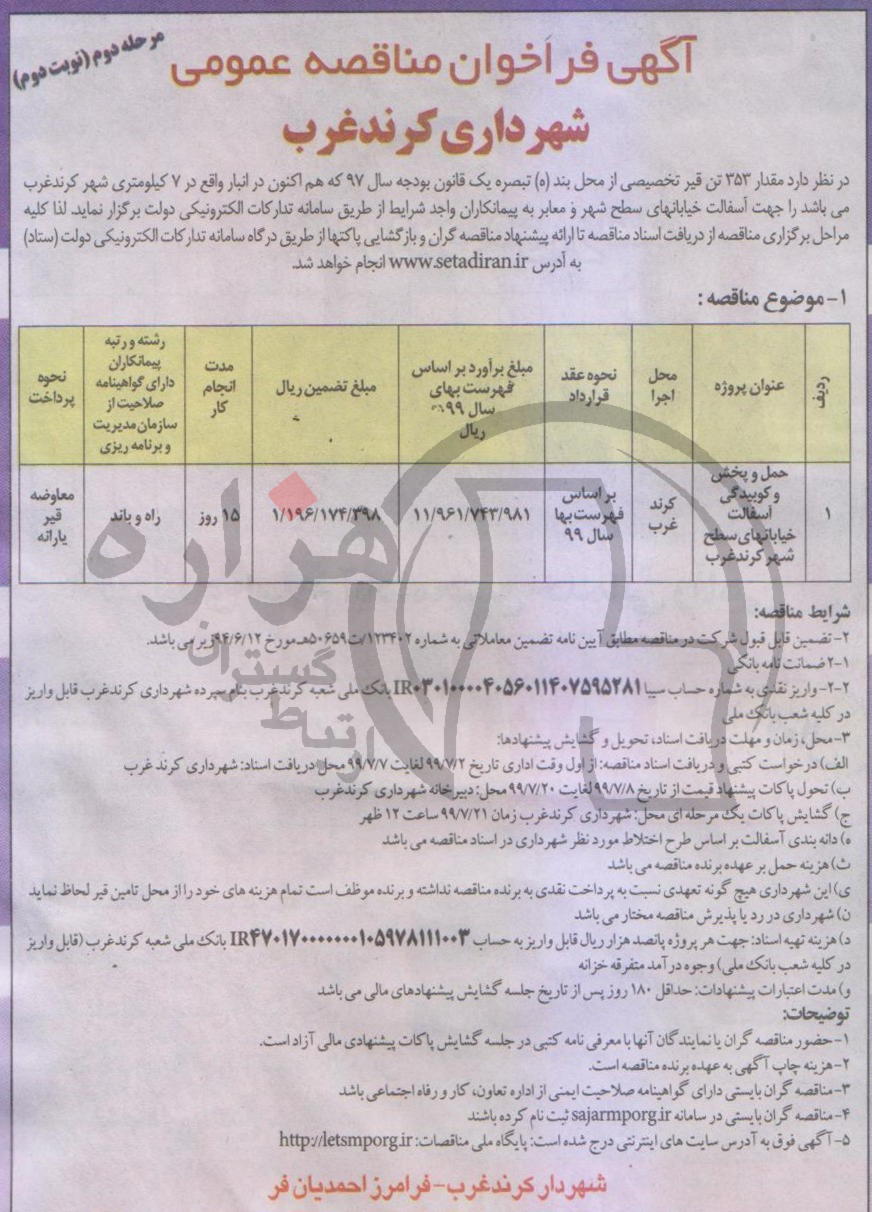 مرحله دوم (نوبت دوم)
آگهی فراخوان مناقصه عمومی
شهرداری کرندغرب
در نظر دارد مقدار ۳۵۳ تن قیر تخصیصی از محل بند (ه) تبصره یک قانون بودجه سال ۹۷ که هم اکنون در انبار واقع در ۷ کیلومتری شهر کرندغرب
می باشد را جهت آسفالت خیابانهای سطح شهر و معابر به پیمانکاران واجد شرایط از طریق سامانه تدارکات الکترونیکی دولت برگزار نماید. لذا کلیه
مراحل برگزاری مناقصه از دریافت اسناد مناقصه تا ارائه پیشنهاد مناقصه گران و بازگشایی پاکتها از طریق درگاه سامانه تدارکات الکترونیکی دولت (ستاد)
به آدرس www.setadiran.ir انجام خواهد شد.
۱- موضوع مناقصه:
ردیف
عنوان پروژه
محل
اجرا
نحوه عقد
قرارداد
مبلغ برآورد بر اساس
فهرست بهای
سال ۹۹
ریال
مبلغ تضمین ریال
مدت
انجام
کار
رشته و رتبه
پیمانکاران
دارای گواهینامه
صلاحیت از
سازمان مدیریت
و برنامه ریزی
نحوه
پرداخت
۱
حمل و پخش
و کوبیدگی
آسفالت
خیابانهای سطح
شهر کرندغرب
کرند
غرب
بر اساس
فهرست بها
سال ۹۹
۱۱/۹۶۱/۷۴۳/۹۸۱
۱/۱۹۶/۱۷۴/۳۹۸
۱۵ روز
راه و باند
معاوضه
قیر
یارانه
شرایط مناقصه:
۲- تضمین قابل قبول شرکت در مناقصه مطابق آیین نامه تضمین معاملاتی به شماره ۱۲۳۴۰۲/ت۵۰۶۵۹هـ مورخ ۹۴/۶/۱۲ زیر می باشد.
۲-۱ ضمانت نامه بانکی
۲-۲- واریز نقدی به شماره حساب سیبا IR۰۳۰۱۰۰۰۰۴۰۵۶۰۱۱۴۰۷۵۹۵۲۸۱ بانک ملی شعبه کرندغرب بنام سپرده شهرداری کرندغرب قابل واریز
در کلیه شعب بانک ملی
۳- محل، زمان و مهلت دریافت اسناد، تحویل و گشایش پیشنهادها:
الف) درخواست کتبی و دریافت اسناد مناقصه: از اول وقت اداری تاریخ ۹۹/۷/۲ لغایت ۹۹/۷/۷ محل دریافت اسناد: شهرداری کرند غرب
ب) تحول پاکات پیشنهاد قیمت از تاریخ ۹۹/۷/۸ لغایت ۹۹/۷/۲۰ محل: دبیرخانه شهرداری کرندغرب
ج) گشایش پاکات یک مرحله ای محل: شهرداری کرندغرب زمان ۹۹/۷/۲۱ ساعت ۱۲ ظهر
ه) دانه بندی آسفالت بر اساس طرح اختلاط مورد نظر شهرداری در اسناد مناقصه می باشد
ث) هزینه حمل بر عهده برنده مناقصه می باشد
ی) این شهرداری هیچ گونه تعهدی نسبت به پرداخت نقدی به برنده مناقصه نداشته و برنده موظف است تمام هزینه های خود را از محل تامین قیر لحاظ نماید
ن) شهرداری در رد یا پذیرش مناقصه مختار می باشد
د) هزینه تهیه اسناد: جهت هر پروژه پانصد هزار ریال قابل واریز به حساب IR۴۷۰۱۷۰۰۰۰۰۰۰۱۰۵۹۷۸۱۱۱۰۰۳ بانک ملی شعبه کرندغرب (قابل واریز
در کلیه شعب بانک ملی) وجوه درآمد متفرقه خزانه
و) مدت اعتبارات پیشنهادات: حداقل ۱۸۰ روز پس از تاریخ جلسه گشایش پیشنهادهای مالی می باشد
توضیحات:
۱- حضور مناقصه گران یا نمایندگان آنها با معرفی نامه کتبی در جلسه گشایش پاکات پیشنهادی مالی آزاد است.
۲- هزینه چاپ آگهی به عهده برنده مناقصه است.
۳- مناقصه گران بایستی دارای گواهینامه صلاحیت ایمنی از اداره تعاون، کار و رفاه اجتماعی باشد
۴- مناقصه گران بایستی در سامانه sajarmporg.ir ثبت نام کرده باشند
۵- آگهی فوق به آدرس سایت های اینترنتی درج شده است: پایگاه ملی مناقصات: http://letsmporg.ir
شهردار کرندغرب - فرامرز احمدیان فر
هزاره
گستران
ارتباط